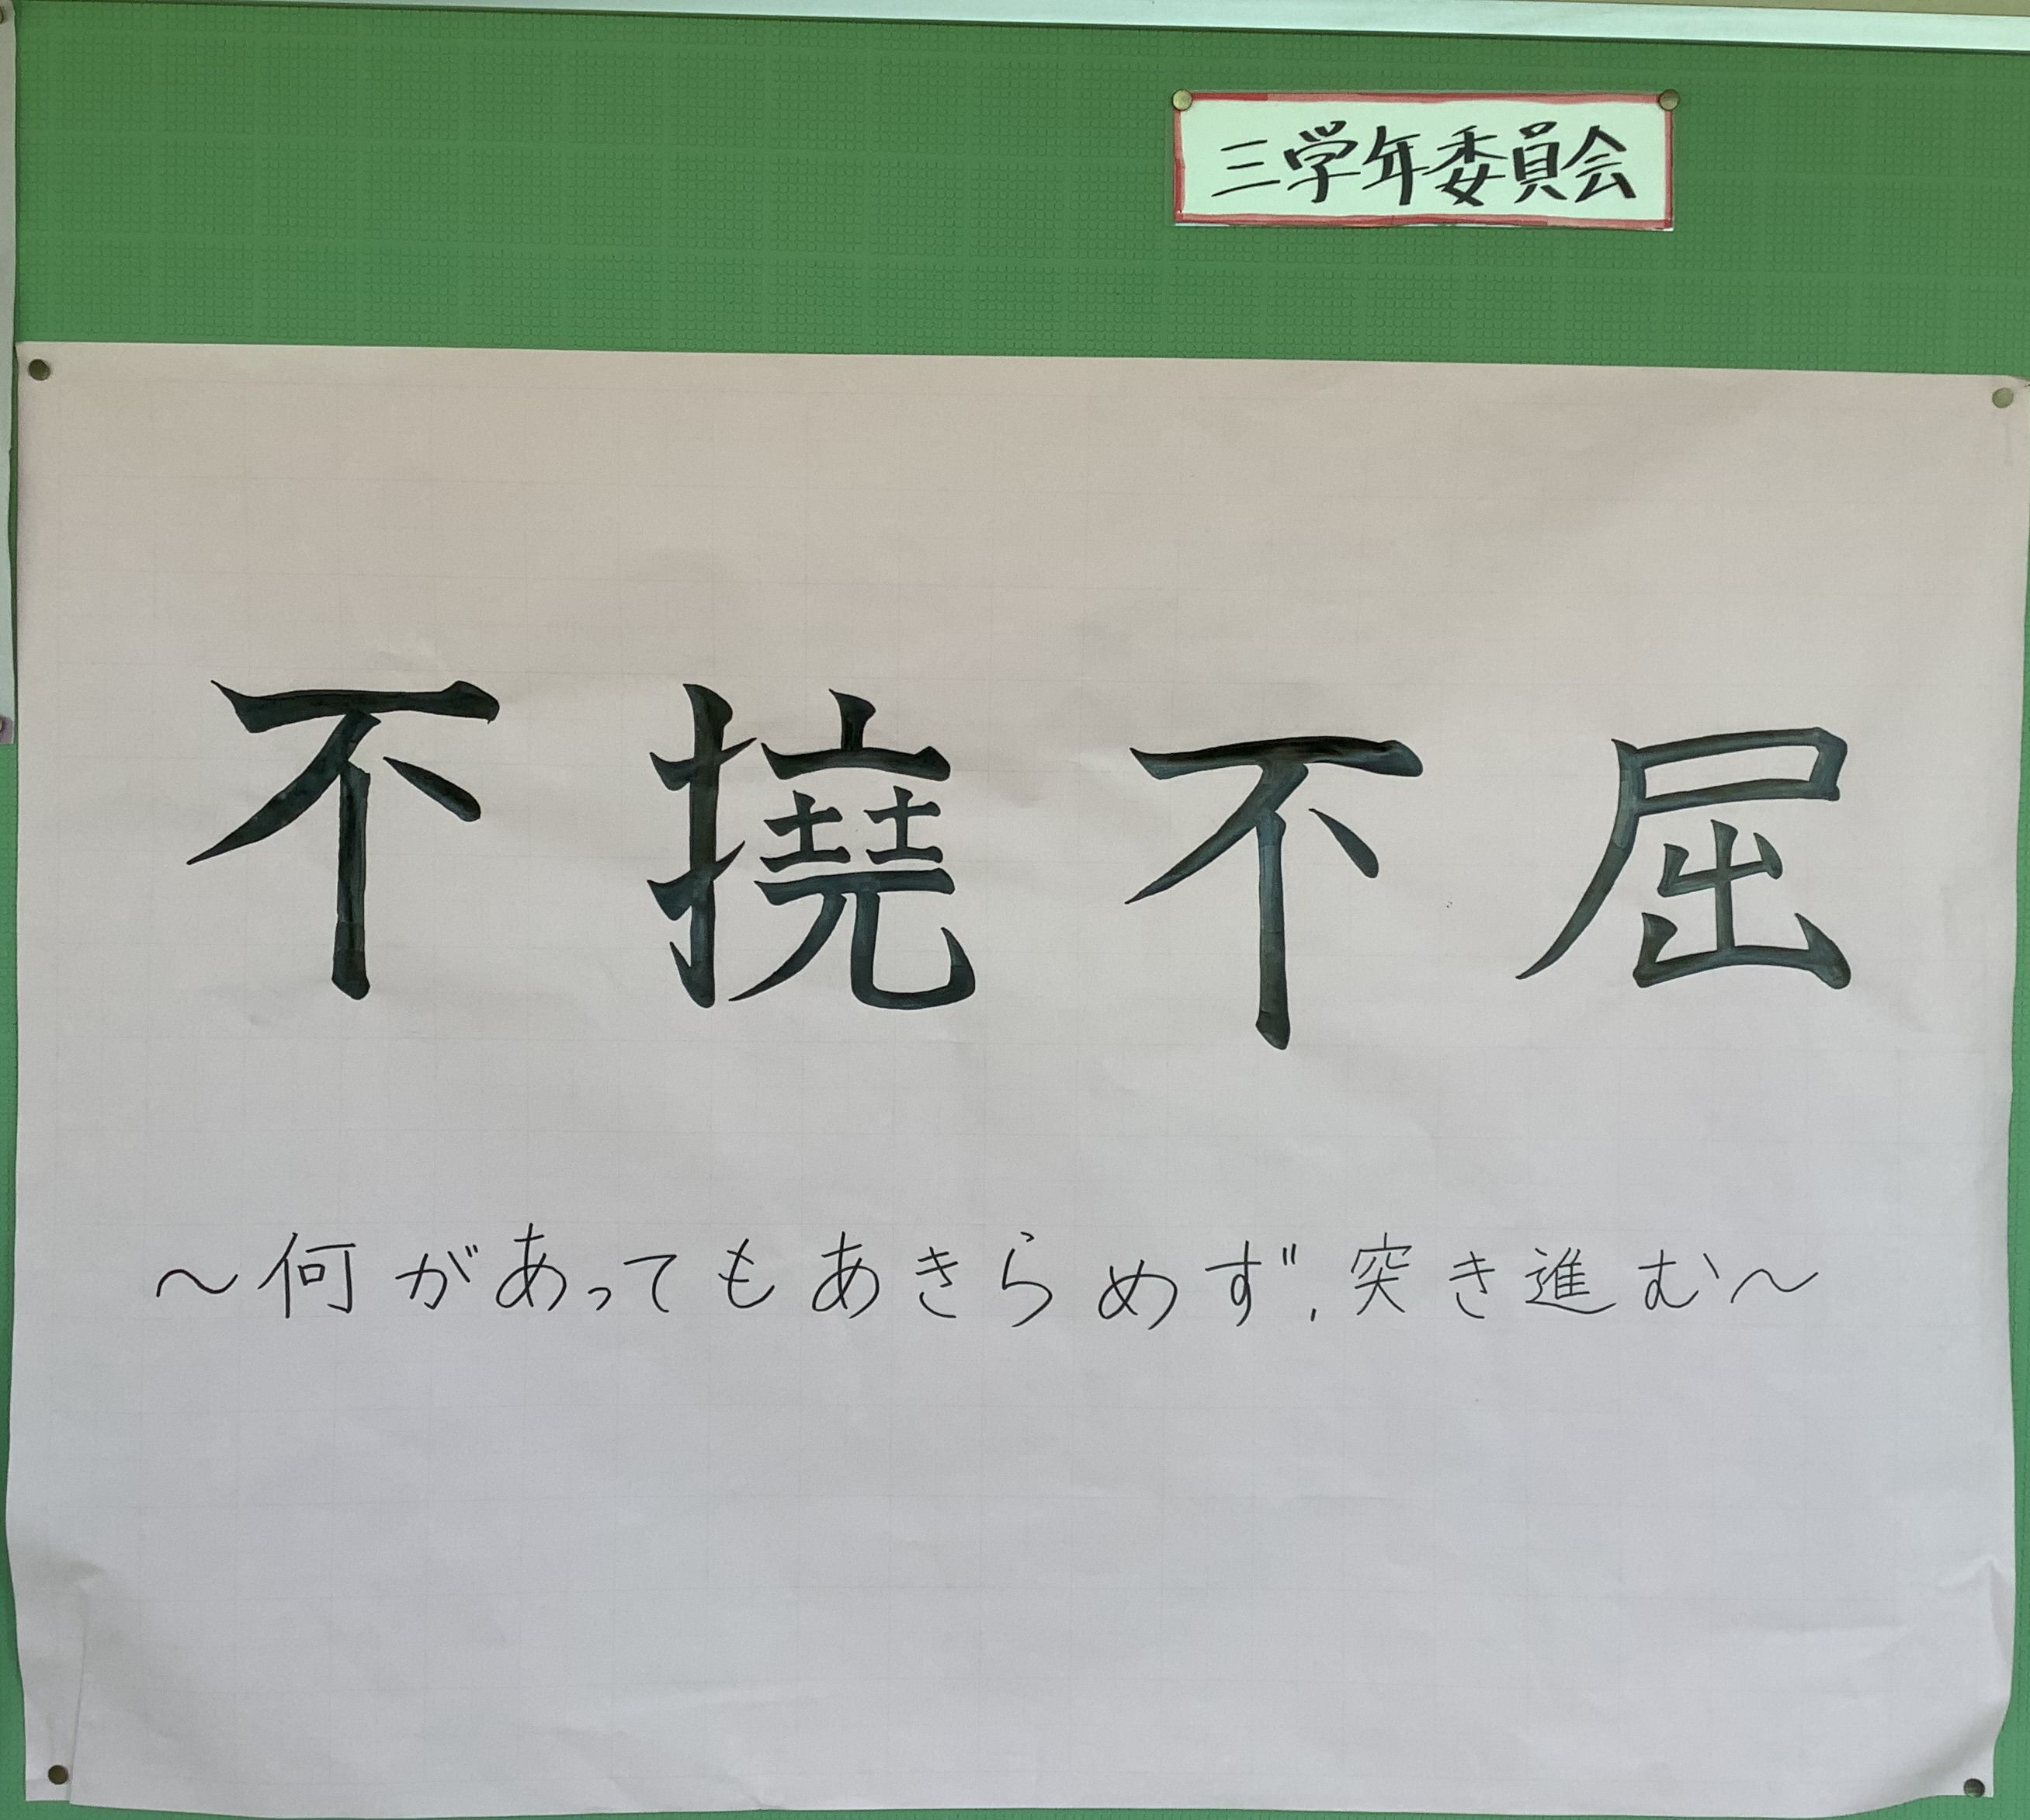 三学年委員会
不撓不屈
～何があってもあきらめず,突き進む～